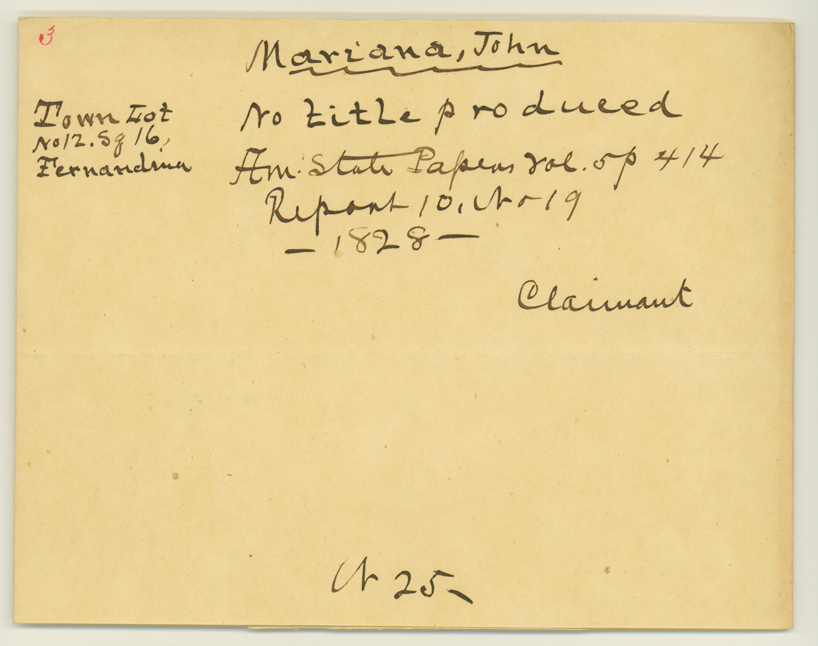 3
Mariana, John
Town Lot
No 12. Sq 16,
Fernandina
No title produced
Am. State Papers vol. 5 p 414
Report 10, No 19
— 1828 —
Claimant
N 25